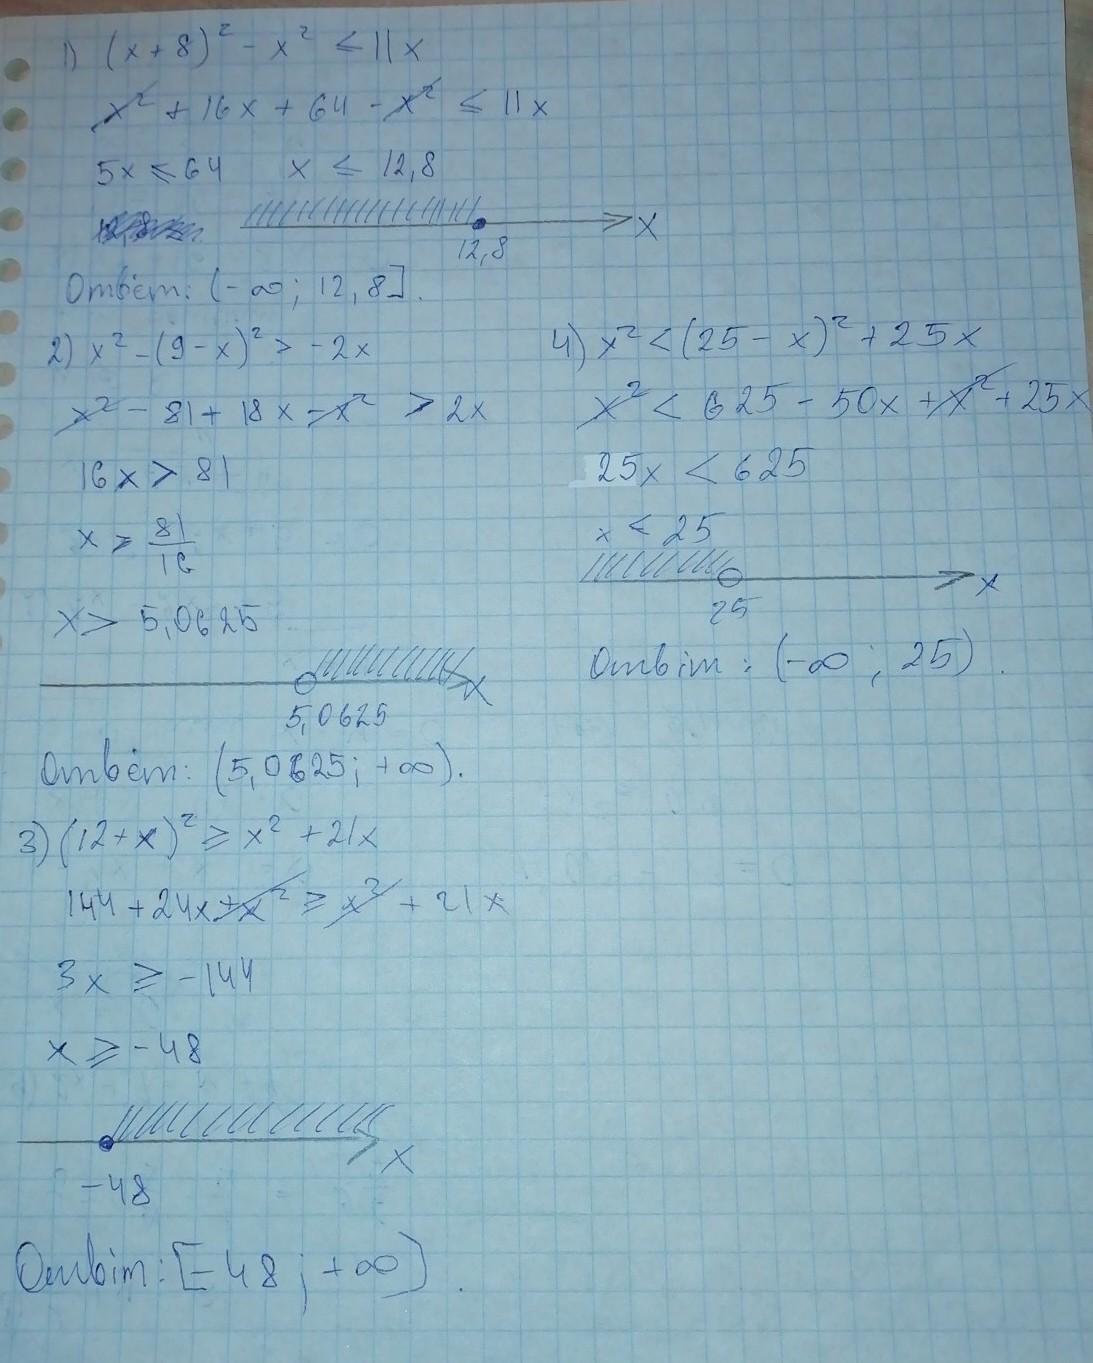 1) (x+8)² - x² ≤ 11x
x² + 16x + 64 - x² ≤ 11x
5x ≤ 64 x ≤ 12,8
x
12,8
Отвём: (-∞; 12,8].
2) x² - (9-x)² > -2x
x² - 81 + 18x - x² > 2x
16x > 81
x > 81/16
x > 5,0625
x
5,0625
Отвём: (5,0625; +∞).
3) (12+x)² ≥ x² + 21x
144 + 24x + x² ≥ x² + 21x
3x ≥ -144
x ≥ -48
x
-48
Отвіт: [-48; +∞).
4) x² < (25 - x)² + 25x
x² < 625 - 50x + x² + 25x
25x < 625
x < 25
x
25
Отвіт: (-∞; 25).